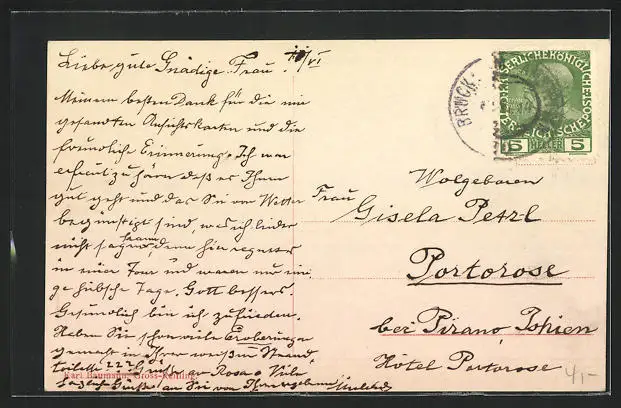 Liebe, gute Gnädige Frau! 11/VI
Meinen besten Dank für die mir
gesandten Ansichtskarten und die
freundliche Erinnerung. Ich war
erfreut zu hören daß es Ihnen
gut geht und das Sie vom Wetter
begünstigt sind, was ich leider
nicht sagen kann, denn hier regnet es
in einer Tour und waren nur eini
ge hübsche Tage. Gott bessers.
Gesundlich bin ich zufrieden.
Haben Sie schon viele Eroberungen
gemacht in Ihrer weißen Strand
toilette ??? an Rosa u Vile
an Sie von Ihrer ergebenen
Karl Baumann, Gross-Reifling
BRUCK
KAISERLICHE KÖNIGLICHE ÖSTERREICHISCHE POST
5 HELLER 5
Wolgeboren
Frau
Gisela Petzl
Portorose
bei Pirano, Ishien
Hôtel Portorose
4,-